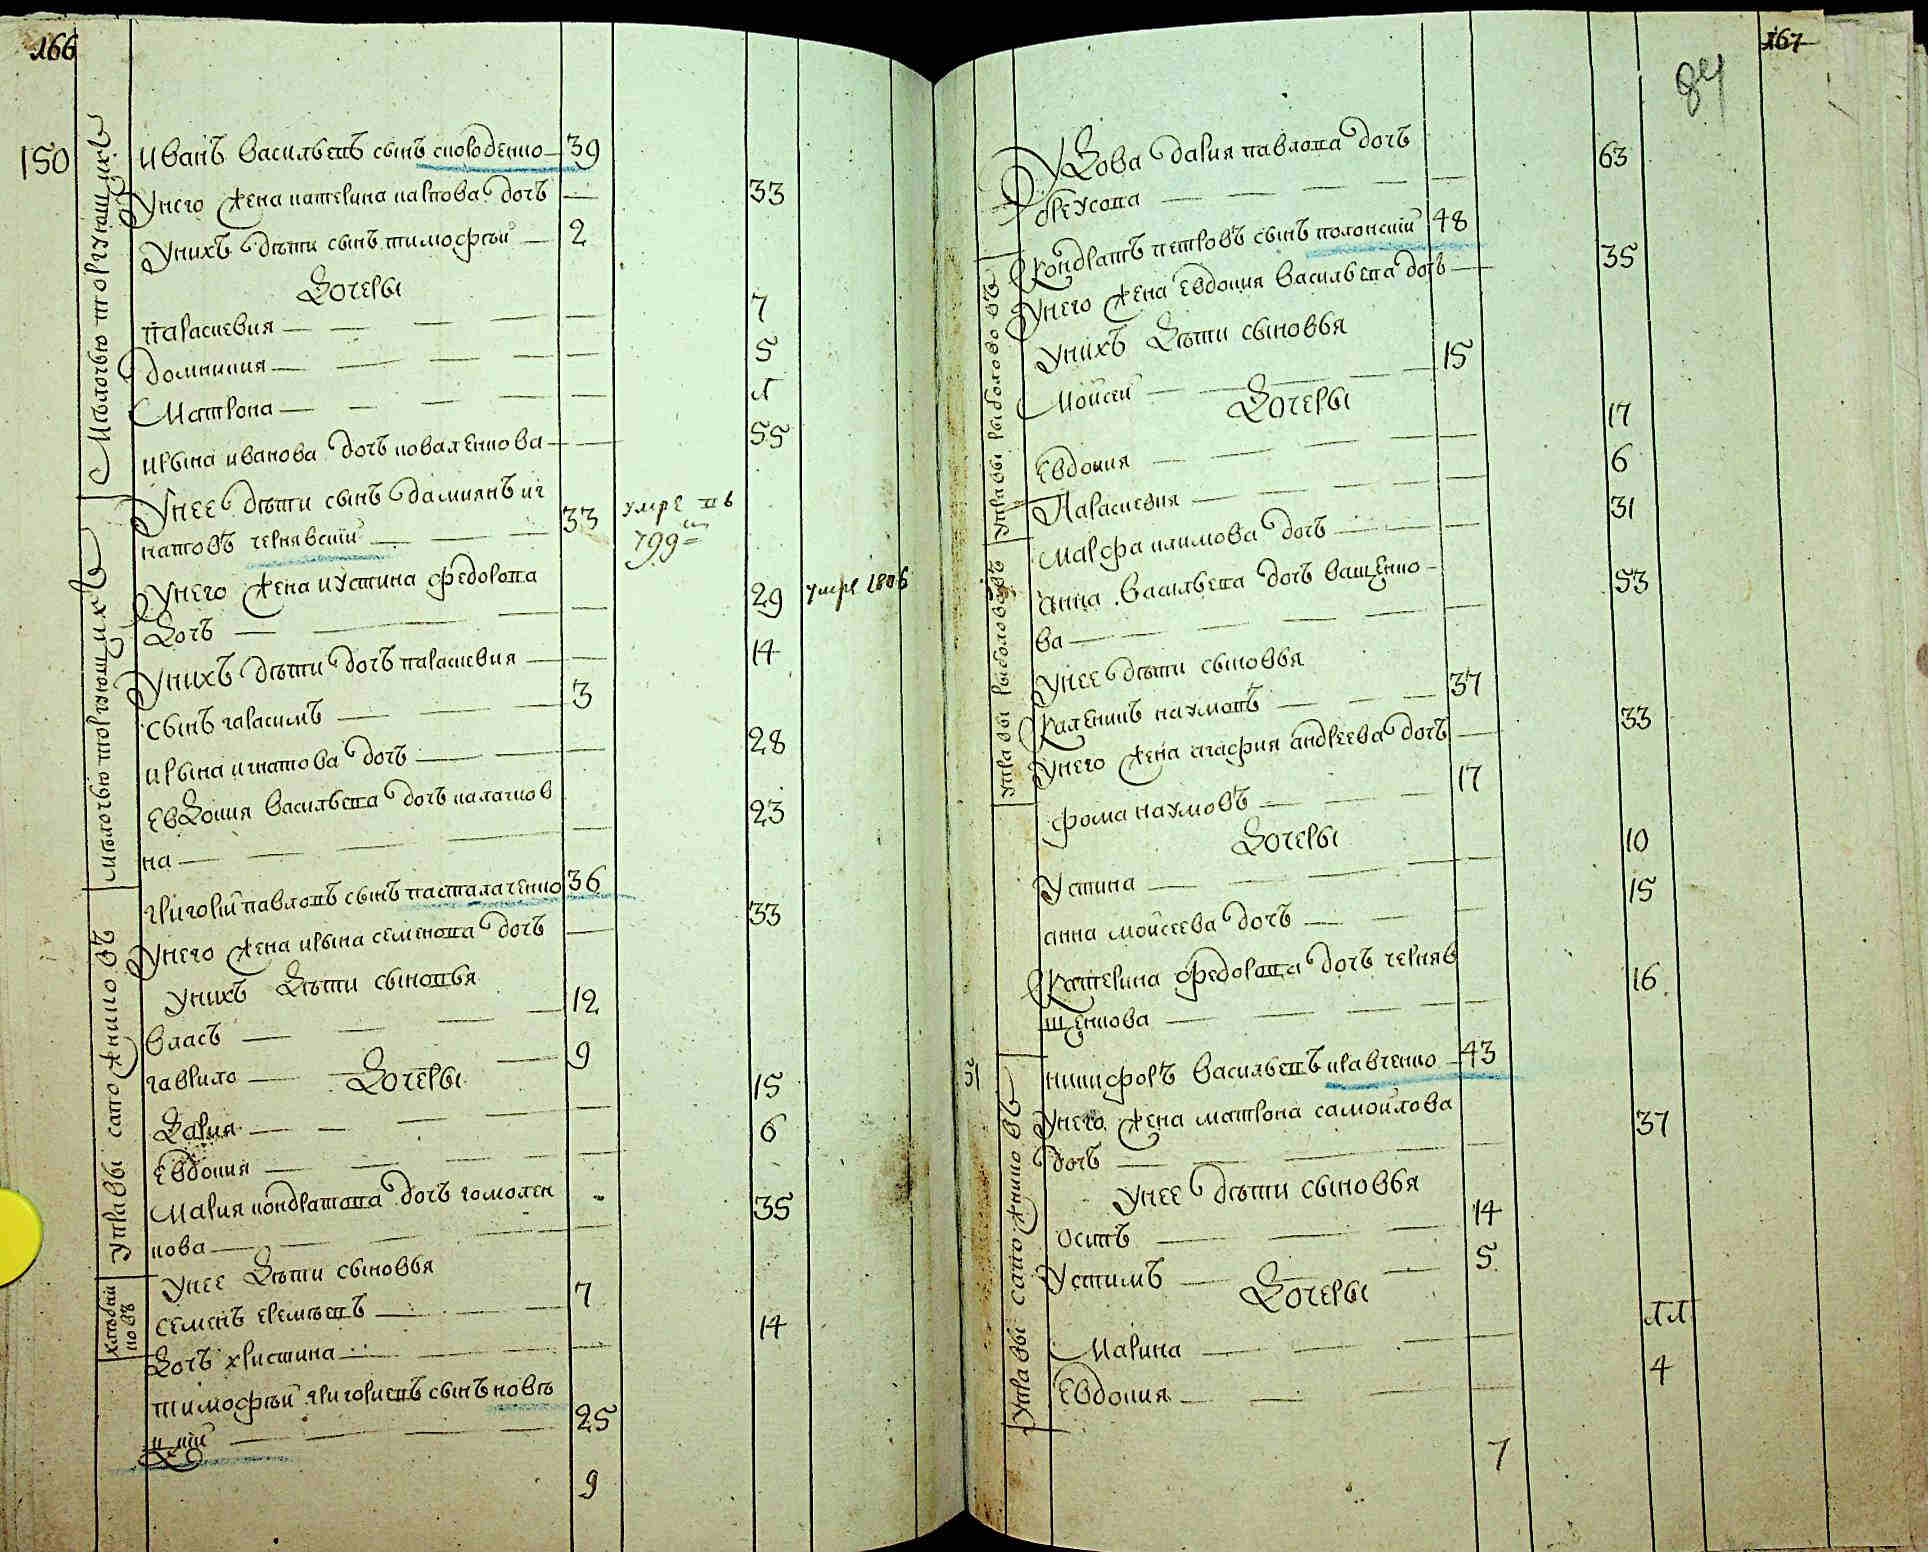 166
150
Мѣлочью торгующихъ
Иванъ Васильевъ сынъ сколоденко — 39
У него жена катерина карпова дочь — 33
У нихъ дѣти сынъ тимофѣй — 2
Дочеры
параскевия — 7
домникия — 5
Матрона — 1
ирына иванова дочь коваленкова — 55
У нее дѣти сынъ дамиянъ иг
натовъ чернявский — 33 умре в
799
У него жена иустина федорова
дочь — 29 умре 1806
У нихъ дѣти дочь параскевия — 14
сынъ гарасимъ — 3
ирына игнатова дочь — 28
Евдокия Васильева дочь калачнов
на — 23
григорій павловъ сынъ пасталаченко 36
У него жена ирына семенова дочь — 33
У нихъ дѣти сыновья
власъ — 12
гаврило — 9
Дочеры
Дария — 15
евдокия — 6
Мария кондратова дочь гомолен
кова — 35
У нее дѣти сыновья
семенъ еремѣевъ — 7
Дочь христина — 14
тимофѣй григориевъ сынъ новѣ
цкий — 25
9
мѣлочью торгующихъ
Управы сапожниковъ
хлѣбни
ковъ
167
84
Удова дария павлова дочь
бреусова — 63
Кондратъ петровъ сынъ полонский 48
У него жена евдокия васильева дочь — 35
У нихъ дѣти сыновья
Мойсей — 15
Дочеры
Евдокия — 17
Параскевия — 6
марфа климова дочь — 31
анна Васильева дочь ващенко
ва — 53
У нее дѣти сыновья
Каленикъ наумовъ — 37
У него жена агафия андреева дочь — 33
фома наумовъ — 17
Дочеры
Устина — 10
анна мойсеева дочь — 15
Катерина федорова дочь черняв
щенкова — 16
никифоръ Васильевъ кравченко — 43
У него жена матрона самойлова
дочь — 37
У нее дѣти сыновья
осипъ — 14
Устимъ — 5
Дочеры
Марина — 11
Евдокия — 4
7
Управы рыболововъ
Управы рыболововъ
Управы сапожниковъ